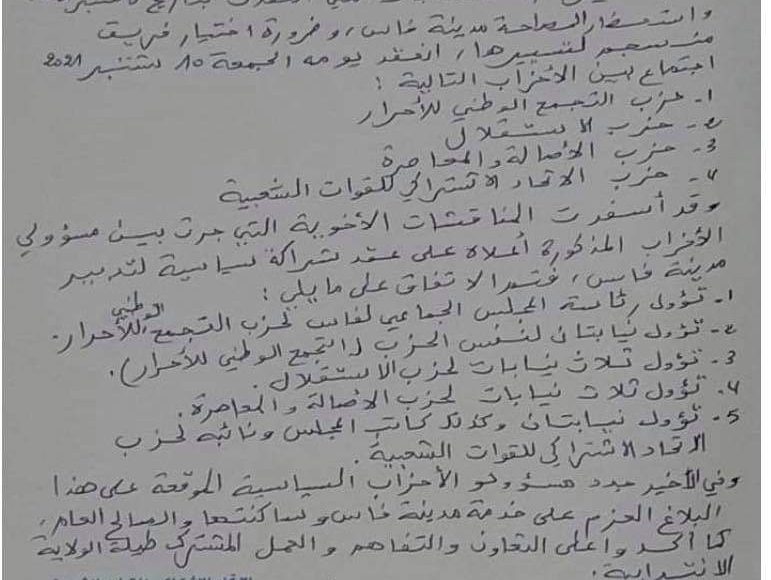 واستحضارا لمصلحة مدينة فاس، و ضرورة اختيار فريق
منسجم لتسييرها، انعقد يومه الجمعة 10 شتنبر 2021
اجتماع بين الأحزاب التالية :
1- حزب التجمع الوطني للأحرار
2- حزب الاستقلال
3- حزب الأصالة والمعاصرة
4- حزب الاتحاد الاشتراكي للقوات الشعبية
وقد أسفرت المناقشات الأخوية التي جرت بين مسؤولي
الأحزاب المذكورة أعلاه على عقد شراكة سياسية لتدبير
مدينة فاس، فتم الاتفاق على ما يلي :
1- تؤول رئاسة المجلس الجماعي لفاس لحزب التجمع الوطني للأحرار.
2- تؤول نيابتان لنفس الحزب (التجمع الوطني للأحرار).
3- تؤول ثلاث نيابات لحزب الاستقلال.
4- تؤول ثلاث نيابات لحزب الأصالة والمعاصرة.
5- تؤول نيابتان وكذلك كاتب المجلس ونائبه لحزب
الاتحاد الاشتراكي للقوات الشعبية.
وفي الأخير جدد مسؤولو الأحزاب السياسية الموقعة على هذا
البلاغ العزم على خدمة مدينة فاس وساكنتها والصالح العام،
كما أكدوا على التعاون والتفاهم والعمل المشترك طيلة الولاية
الانتدابية.